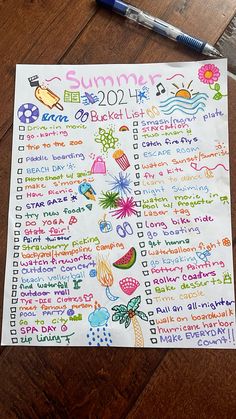 Summer
2024
Bucket List
Drive-in movie
go-karting
trip to the zoo
Paddle boarding
BEACH DAY
Photoshoot w/
make s'mores
Have Picnic
STAR GAZE
try new foods
DO YOGA
State fair!
Paint twister
Strawberry picking
backyard/trampoline camping
watch fireworks
beach volleyball
find waterfall
outdoor mall
TYE-DIE CLOTHES
meet famous person
POOL PARTY
Go to city
SPA DAY
zip lining
Smash/regret plates
STAYCATION
two-than
catch fireflys
ESCAPE ROOM
Watch Sunset/Sunrise
fly a kite
Learn to dance
night Swimming
Watch movie in
Pool w/ Projector
Laser tag
Long bike ride
go boating
get henna
Waterballoon fight
go kayaking
Pottery Painting
Roller Coasters
Bake desserts
Time capsule
Pull an all-nighter
Outdoor concert
walk on boardwalk
hurricane harbor
Make EVERYDAY
Count!!